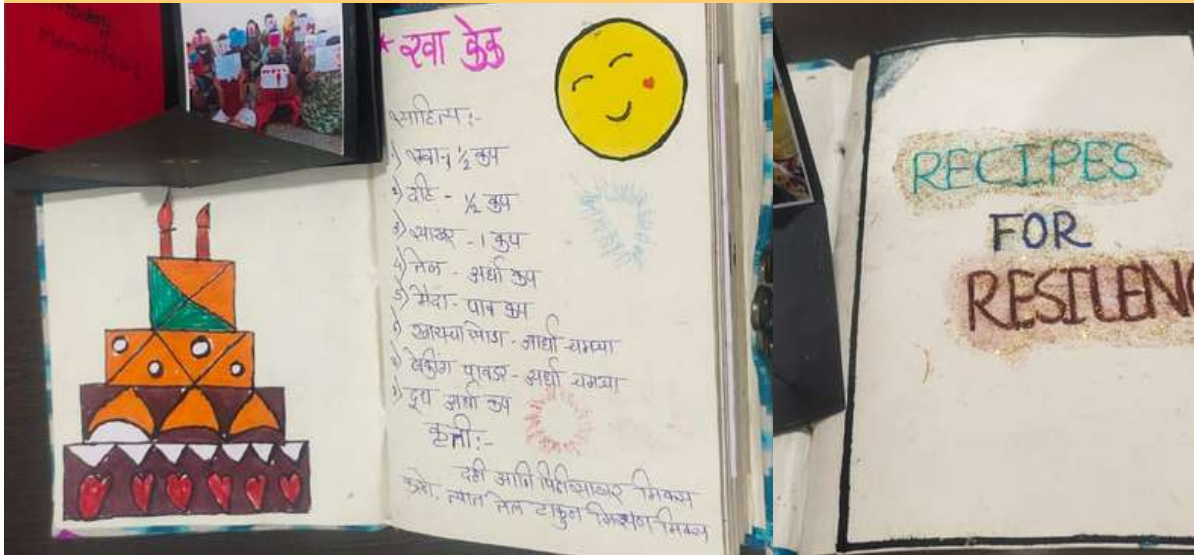 Memories
* रवा केक
साहित्य :-
१) रवा-१ ½ कप
२) दही - ½ कप
३) साखर - 1 कप
४) तेल - अर्धा कप
५) मैदा - पाव कप
खायचा सोडा - अर्धा चमचा
बेकींग पावडर - अर्धा चमचा
दूध अर्धा कप
कृती:-
दही आणि पिठीसाखर मिक्स
करो. त्यात तेल टाकून मिश्रण मिक्स
RECIPES
FOR
RESILENC